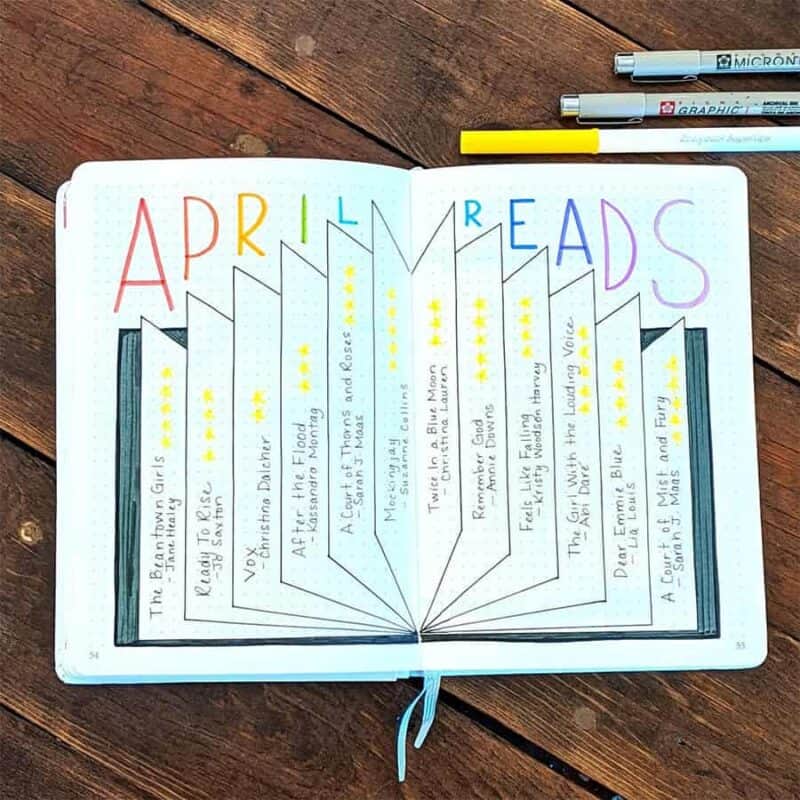 APRIL READS
The Beantown Girls
- Jane Healey
Ready To Rise
- Jo Saxton
Vox
- Christina Dalcher
After the Flood
- Kassandra Montag
A Court of Thorns and Roses
- Sarah J. Maas
Mockingjay
- Suzanne Collins
Twice In a Blue Moon
- Christina Lauren
Remember God
- Annie Downs
Feels Like Falling
- Kristy Woodson Harvey
The Girl With the Louding Voice
- Abi Daré
Dear Emmie Blue
- Lia Louis
A Court of Mist and Fury
- Sarah J. Maas
54
55
MICRON
GRAPHIC 1